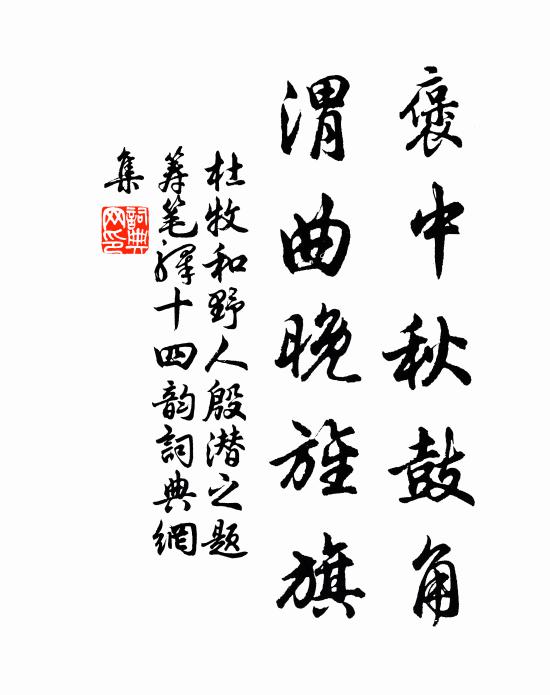 褒中秋鼓角
渭曲晚旌旗
杜牧和野人殷潜之题
筹笔驛十四韵詞典網
集
詞典
网印